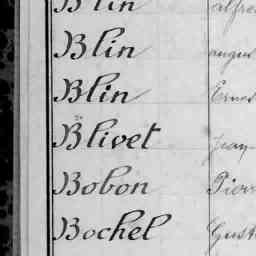 Blin alfred
Blin augus
Blin Ernes
Blivet Jean
Bobon Pierr
Bochel Gust